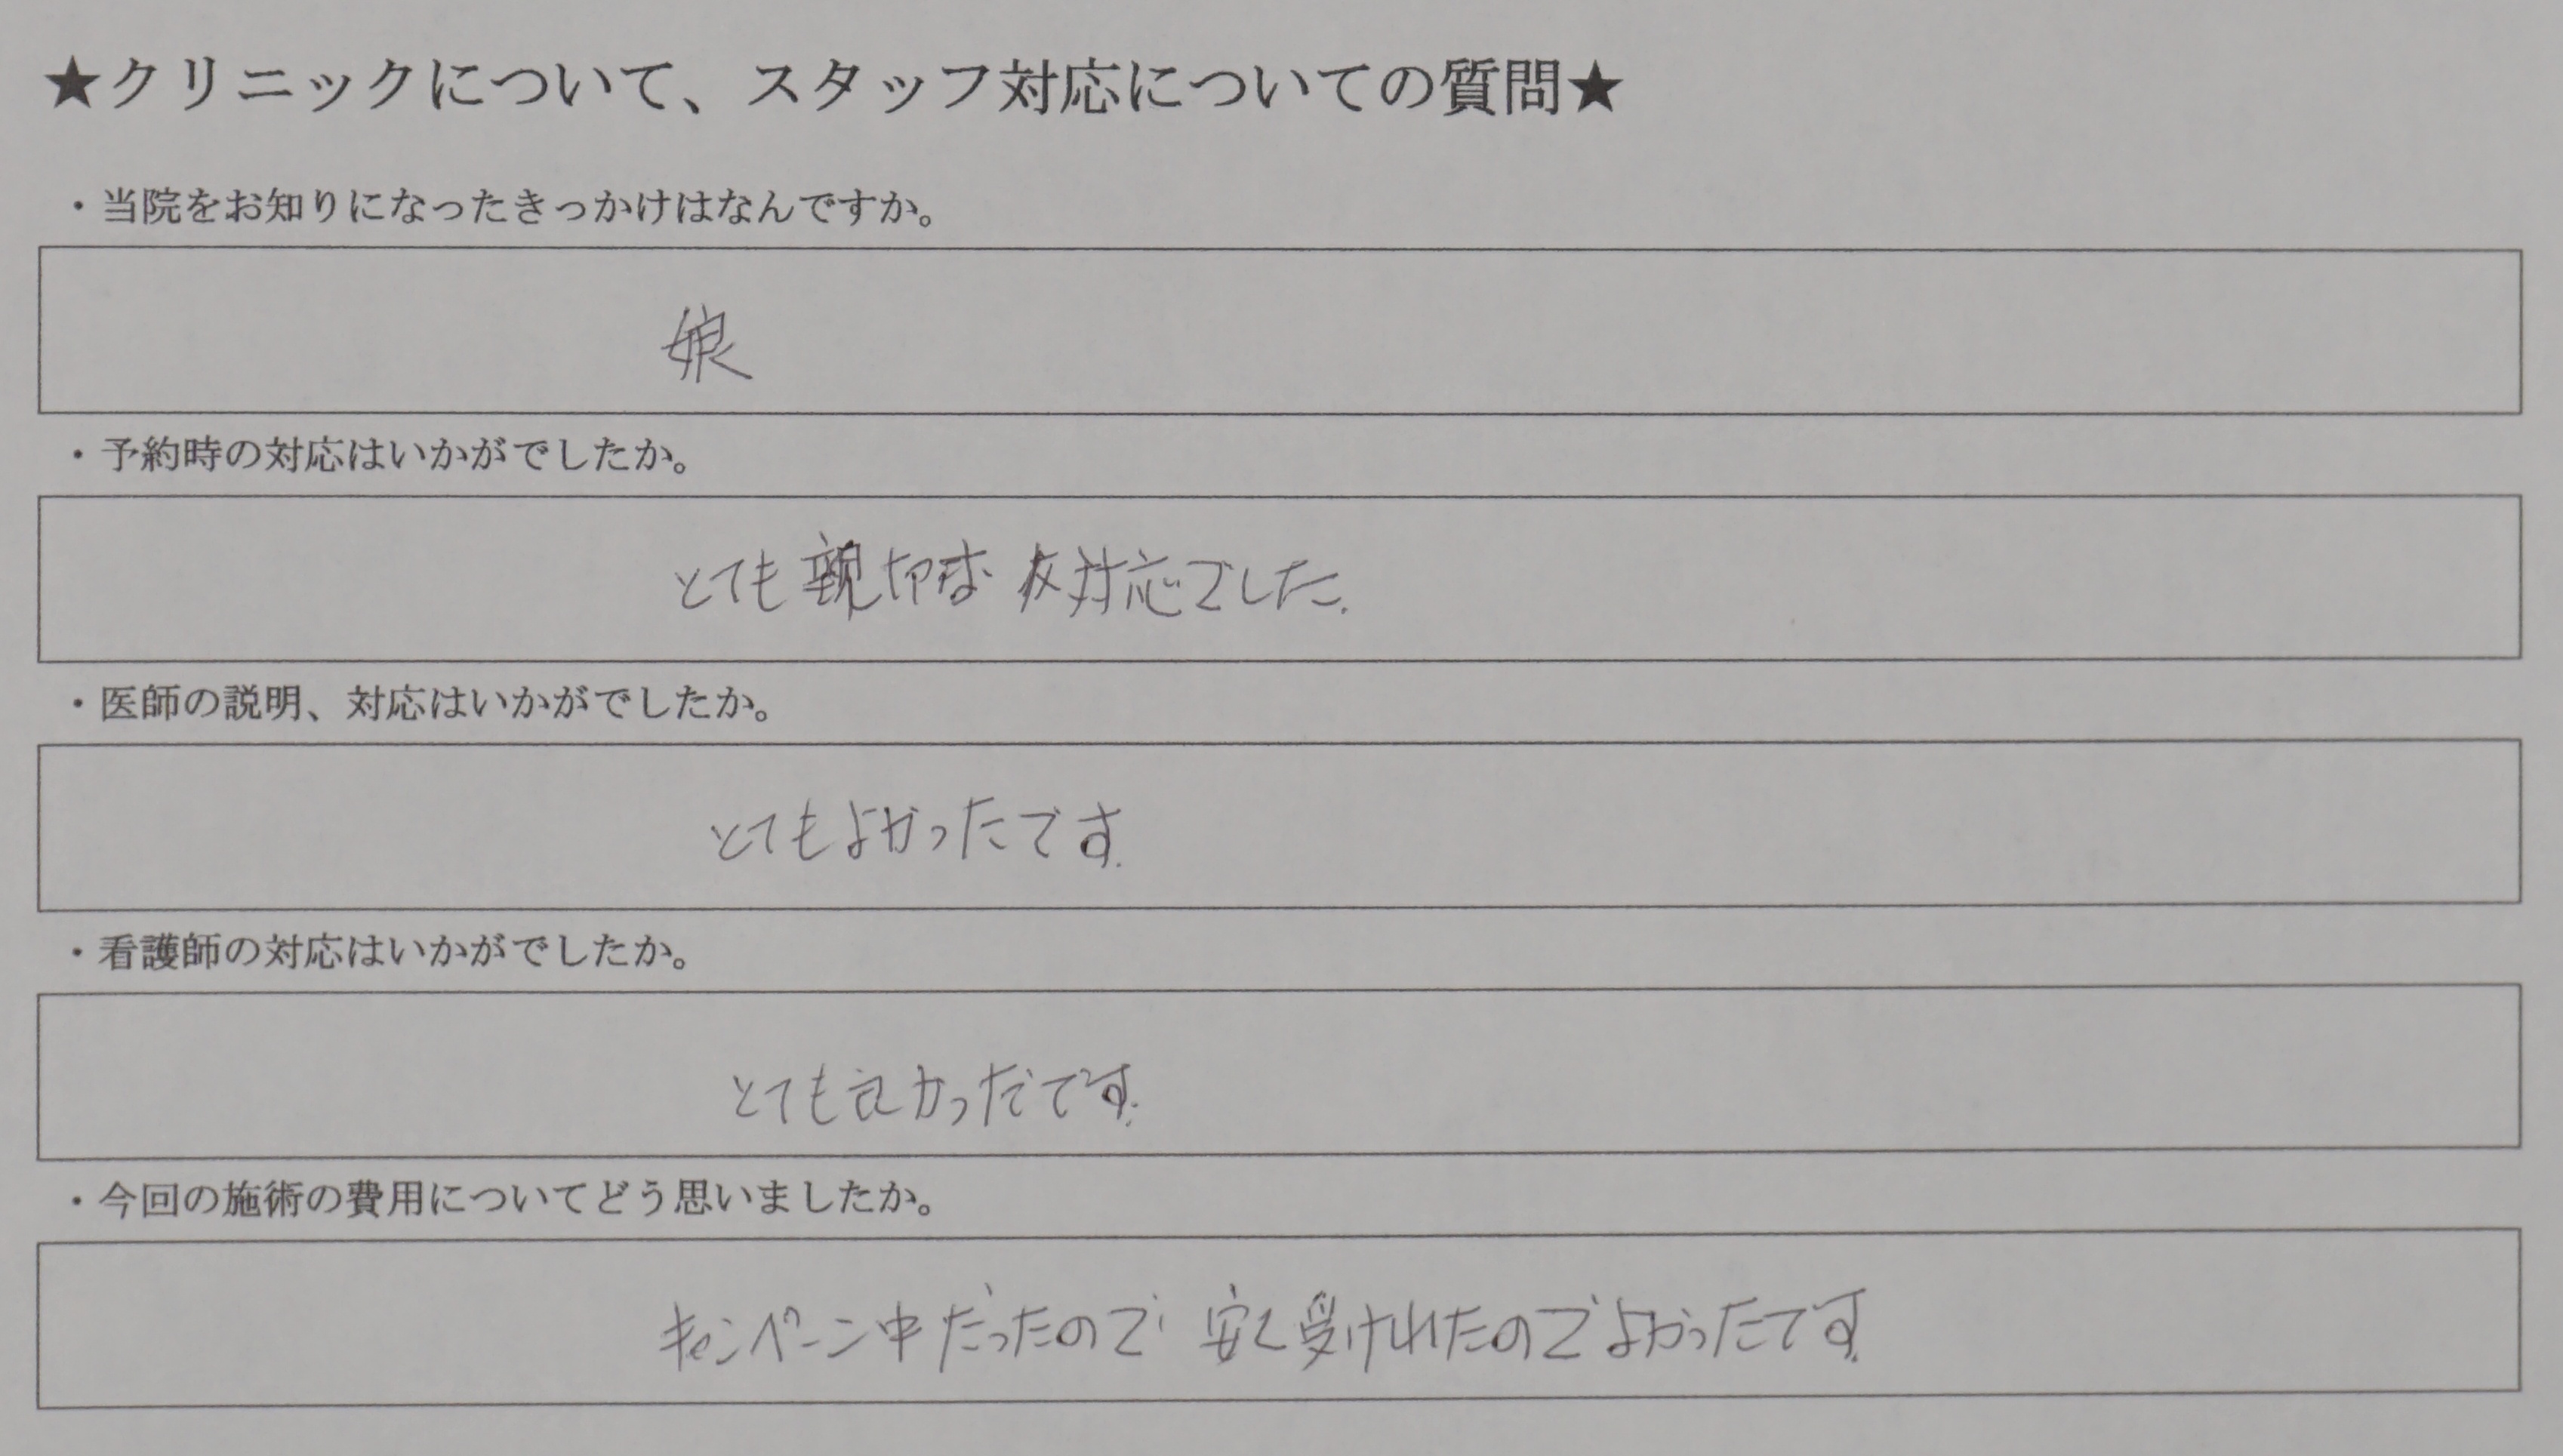 ★クリニックについて、スタッフ対応についての質問★
・当院をお知りになったきっかけはなんですか。
娘
・予約時の対応はいかがでしたか。
とても親切な 対応でした.
・医師の説明、対応はいかがでしたか。
とてもよかったです.
・看護師の対応はいかがでしたか。
とても良かったです.
・今回の施術の費用についてどう思いましたか。
キャンペーン中だったので 安く受けれたのでよかったです.